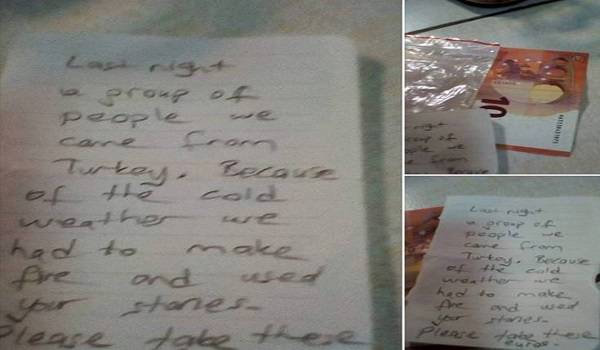 Last night
a group of
people we
came from
Turkey. Because
of the cold
weather we
had to make
fire and used
your stories-
Please take these
10
night
group of
ople we
e from
Because
Last night
a group of
people we
came from
Turkey. Because
of the cold
weather we
had to make
fire and used
your stories-
Please take these
euros-